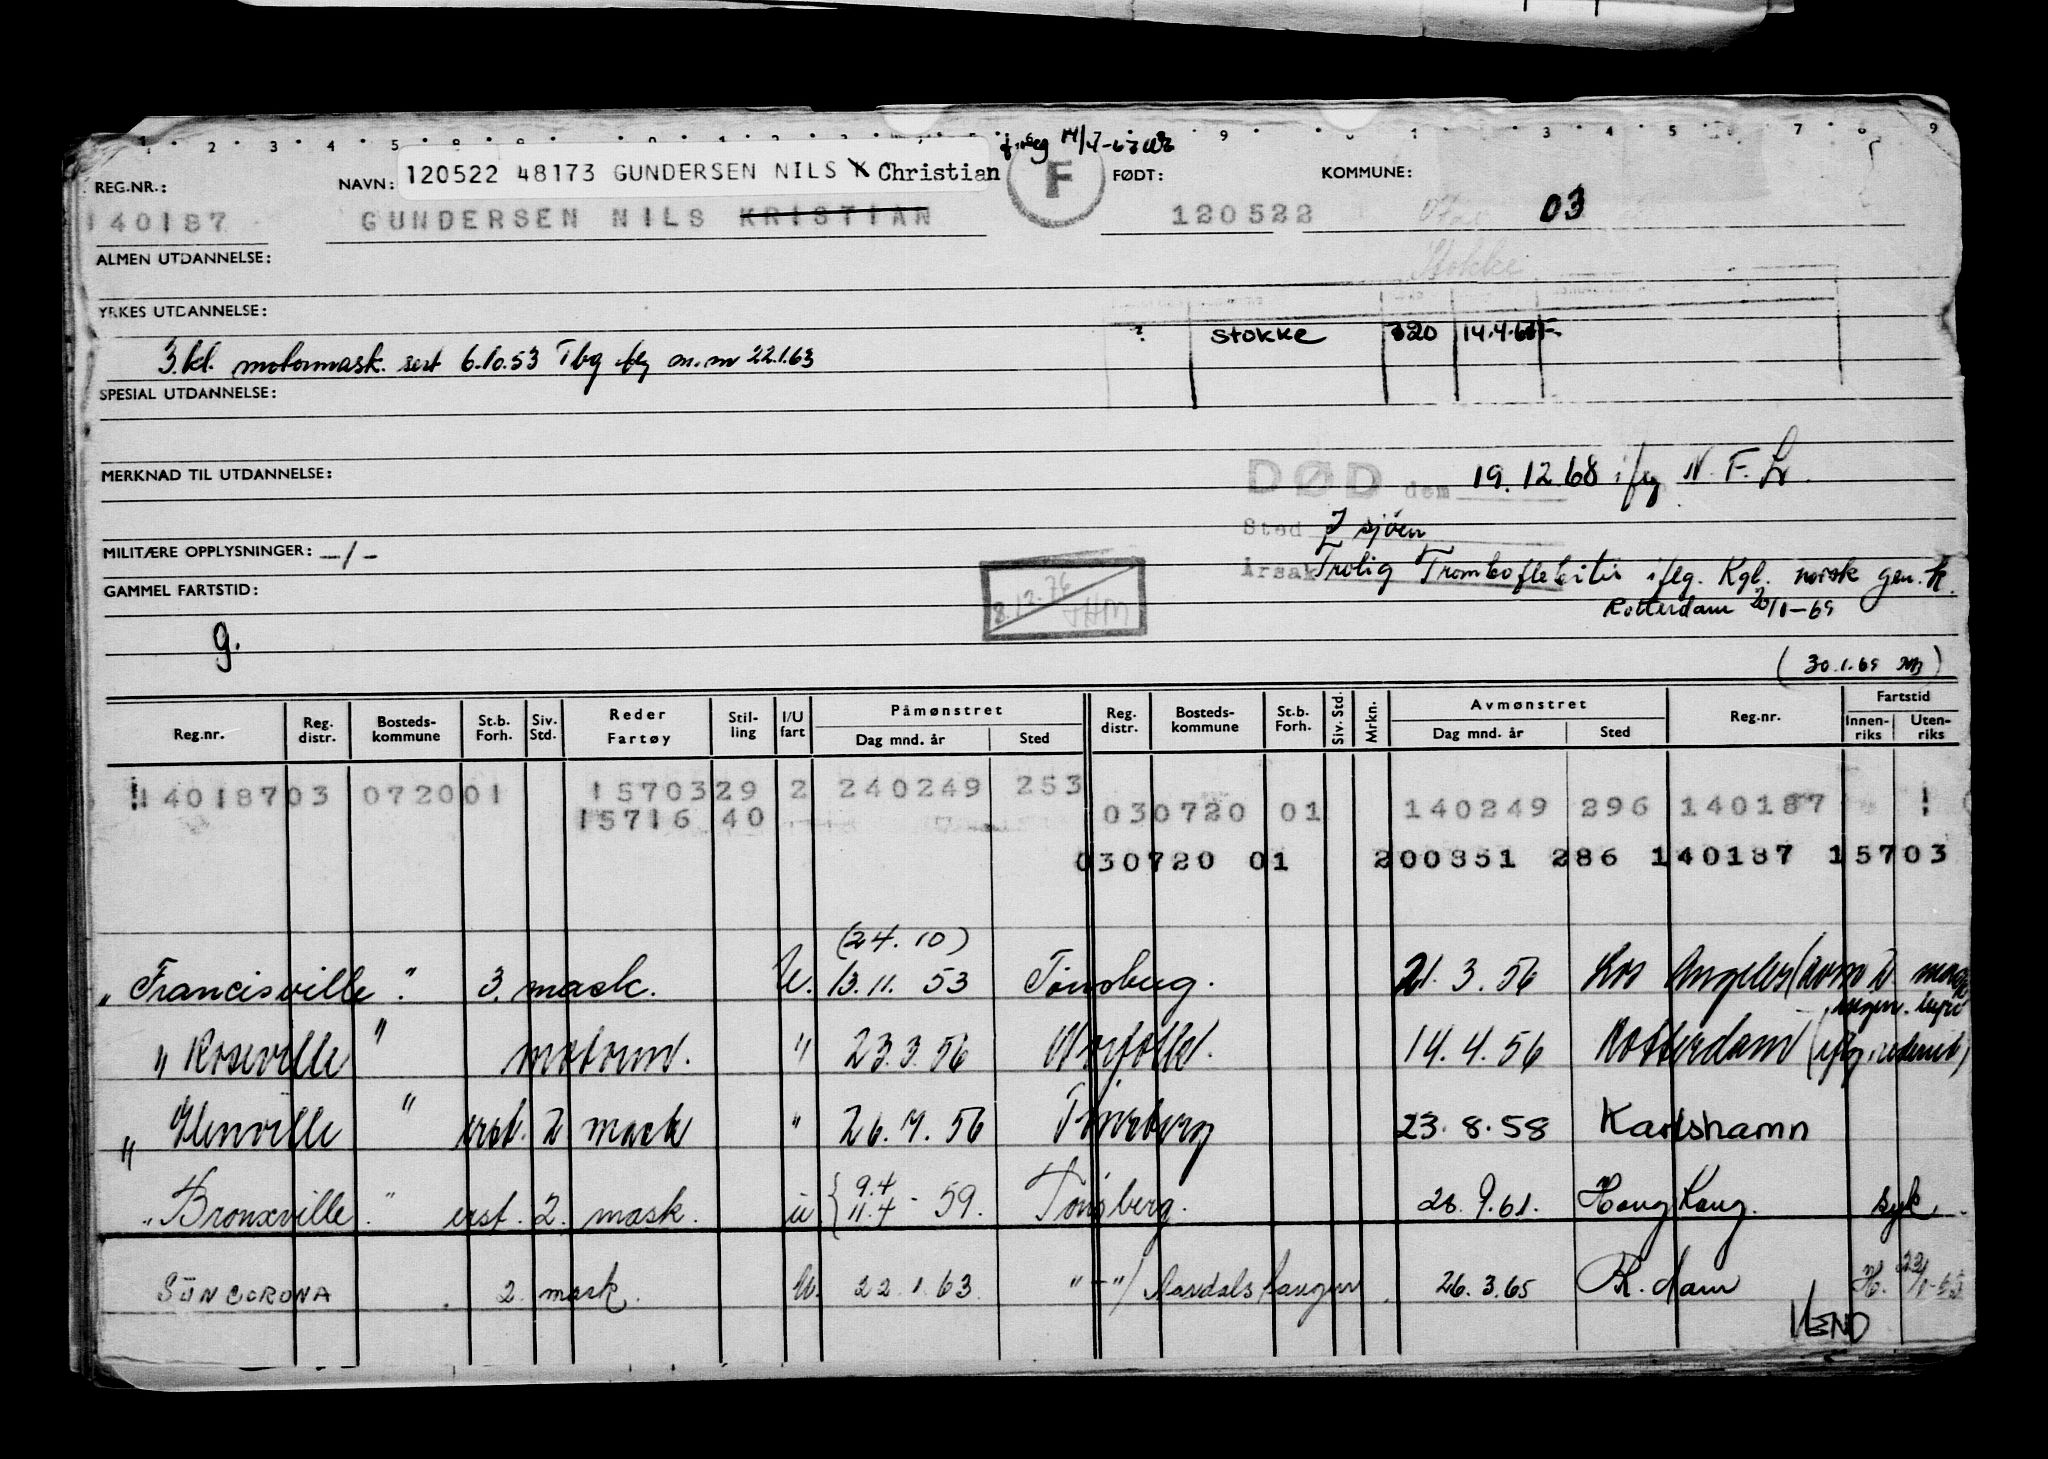 1 · 2 · 3 · 4 · 5
9 · 1 · 3 4 5 7 8 9
14/4-67
REG.NR.: NAVN: 120522 48173 GUNDERSEN NILS K Christian F FØDT: KOMMUNE:
140187 GUNDERSEN NILS KRISTIAN 120522 03
Stokke
ALMEN UTDANNELSE:
YRKES UTDANNELSE:
? Stokke 720 14.4.
3.kl. motormask. sert 6.10.53 Tbg ifg m.m 22.1.63
SPESIAL UTDANNELSE:
MERKNAD TIL UTDANNELSE:
DØD dem 19.12.68 ifg N.F.
Sted I sjøen
MILITÆRE OPPLYSNINGER: -/-
Årsak Trolig Tromboflebitis iflg. Kgl. norsk gen.k.
Rotterdam 20/1-69
GAMMEL FARTSTID:
g.
8.12.76
(30.1.69)
Reg.nr. Reg. distr. Bosteds-kommune St.b. Forh. Siv. Std. Reder Fartøy Stil-ling I/U fart Påmønstret Dag mnd. år Sted Reg. distr. Bosteds-kommune St.b. Forh. Siv. Std. Mrkn. Avmønstret Dag mnd. år Sted Reg.nr. Fartstid Innen-riks Uten-riks
140187 03 0720 01 15703 29 2 240249 253
15716 40 030720 01 140249 296 140187
030720 01 200351 286 140187 15703
(24.10)
" Francisville " 3. mask. U. 13.11.53 Tønsberg. 21.3.56 Los Angeles (som 2. mask
" Roseville " motorm. " 23.3.56 Norfolk. 14.4.56 Rotterdam (iflg. rederiet)
" Glenville " erst. 2 mask " 26.7.56 Tønsberg 23.8.58 Karlshamn
" Bronxville " erst. 2. mask. u { 9.4 11.4 - 59. Tønsberg. 28.9.61. Hong Kong. syk.
SUNCORONA 2. mask. U. 22.1.63 "-"/ 26.3.65 R.dam
VEND